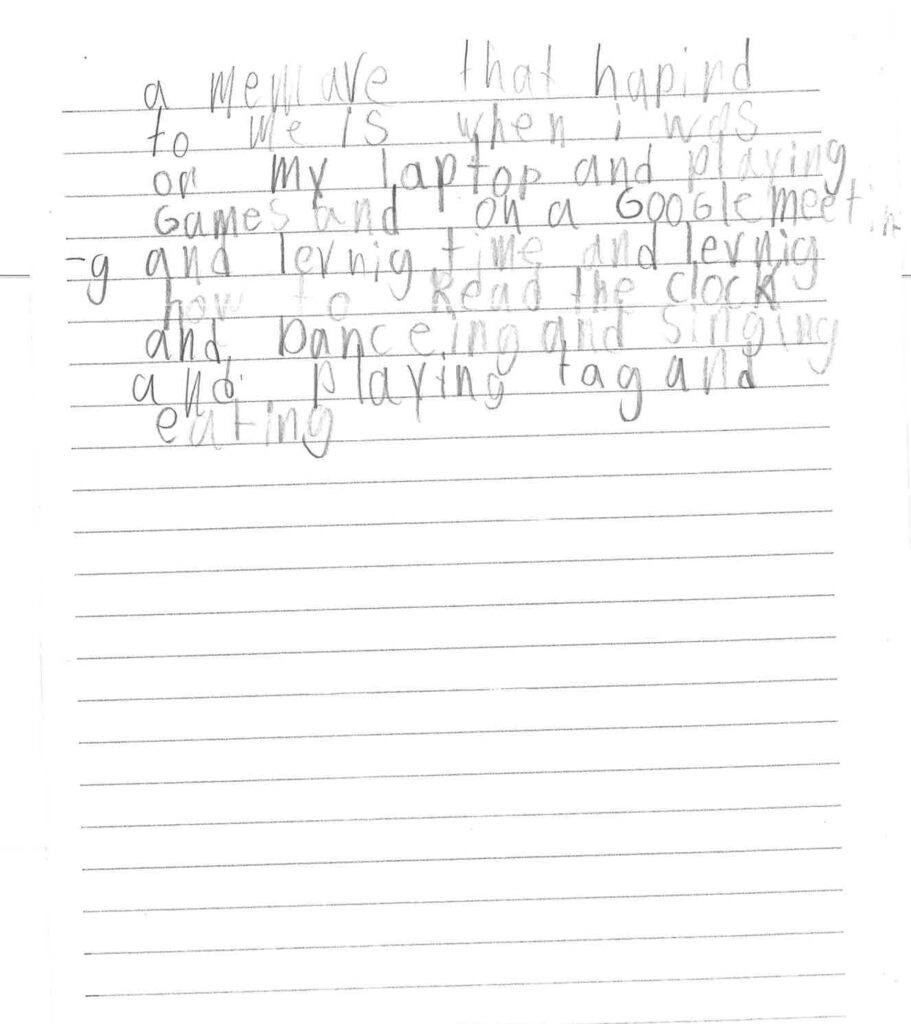 a memave that hapind
to me is when i was
on my laptop and playing
Games and on a Google meetin
-g and lernig time and lernig
how to Read the clock
and Danceing and singing
and playing tag and
eating